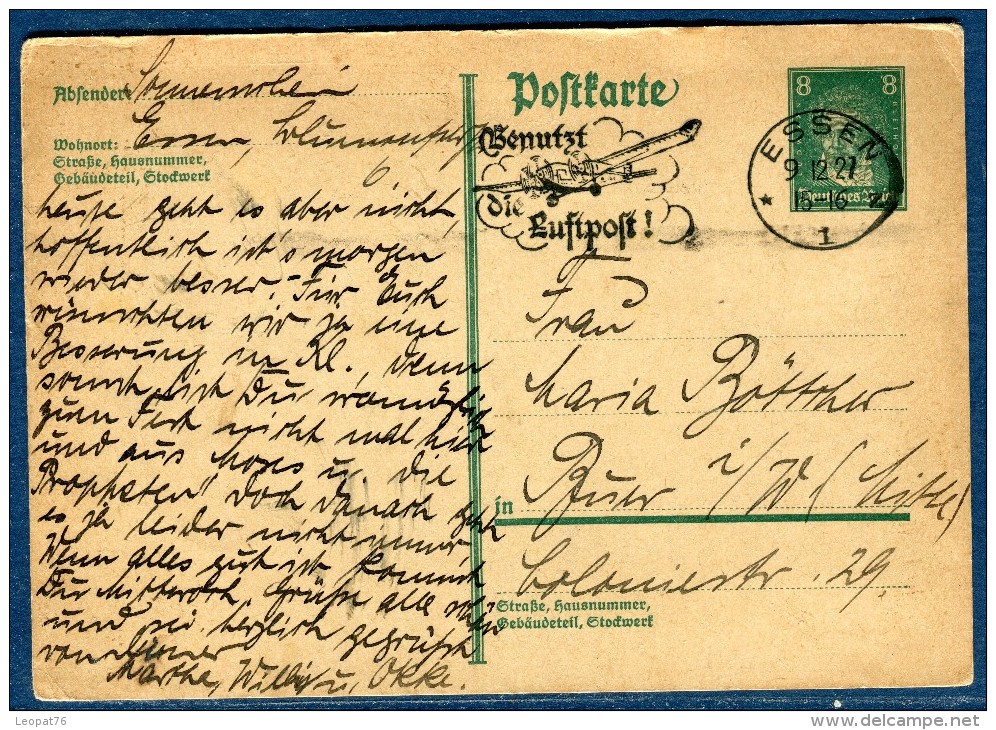 Absender: Sonnenschein
Wohnort: Essen,
Straße, Hausnummer,
Gebäudeteil, Stockwerk
heute geht es aber nicht,
hoffentlich ist's morgen
wieder besser. Für Euch
wünschten wir ja eine
Besserung in Kl., denn
sonst bist Du womöglich
zum Fest nicht mal hier
und aus Moses u. die
Propheten! Doch danach geht
es ja leider nicht immer,
Wenn alles gut ist kommst
Du Mittwoch, Grüße alle schön
und sei herzlich gegrüßt
von Deiner
Martha, Willy u. Okke.
Postkarte
Benutzt
die
Luftpost!
8 8
Deutsches Reich
ESSEN
9 12 27
15-16
* 1
Frau
Maria Böttcher
in Buer i/W (Mitte)
Coloniestr. 29.
Straße, Hausnummer,
Gebäudeteil, Stockwerk
Leopat76
www.delcampe.net